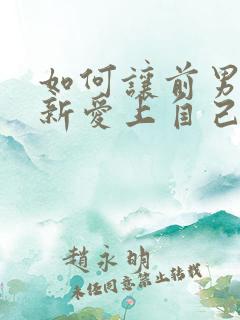 如何讓前男
新愛上自己
趙永明
未經同意禁止轉載